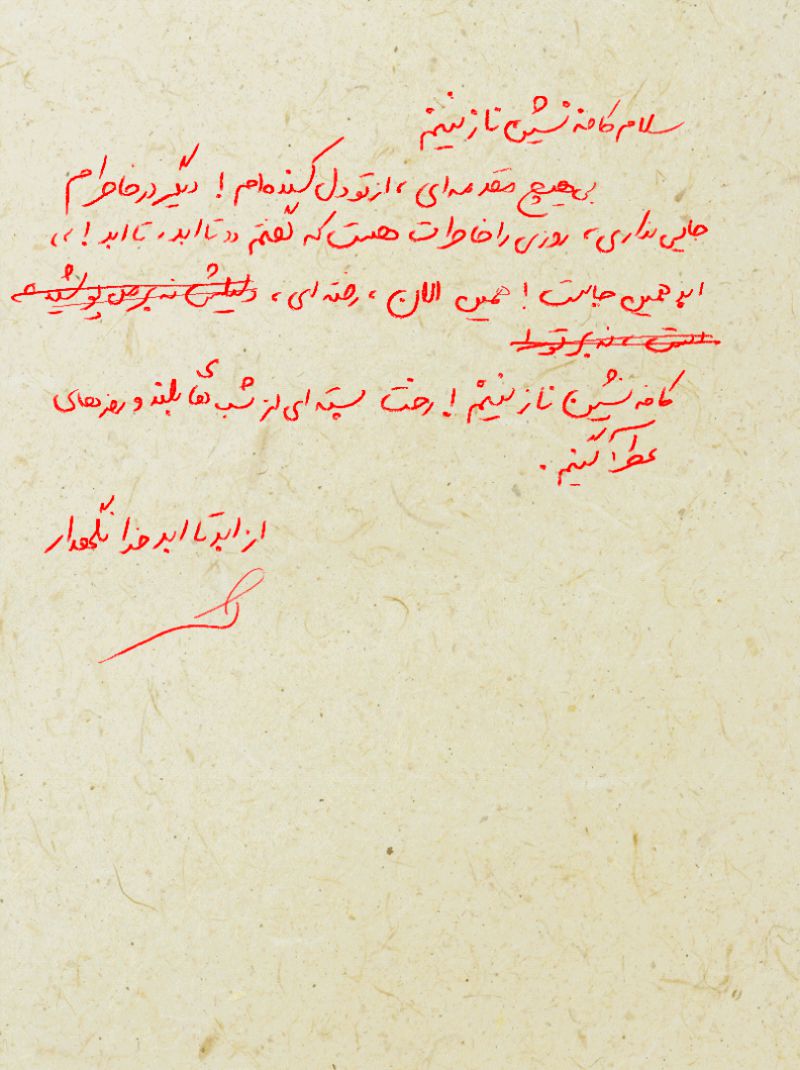 سلام کافه نشین نازنینم
بی هیچ مقدمه‌ای، از تو دل کنده‌ام! دیگر در خاطرام
جایی نداری، روزی را خاطرات هست که گفتم «تا ابد، تا ابد!»
ابد همین جاست! همین الان، رفته‌ای، دلیلش نه بر من پوشیده
است، نه بر تو!
کافه نشین نازنینم! رخت بسته‌ای از شب‌های بلند و روزهای
عطرآگینم.
از ابد تا ابد خدا نگهدار